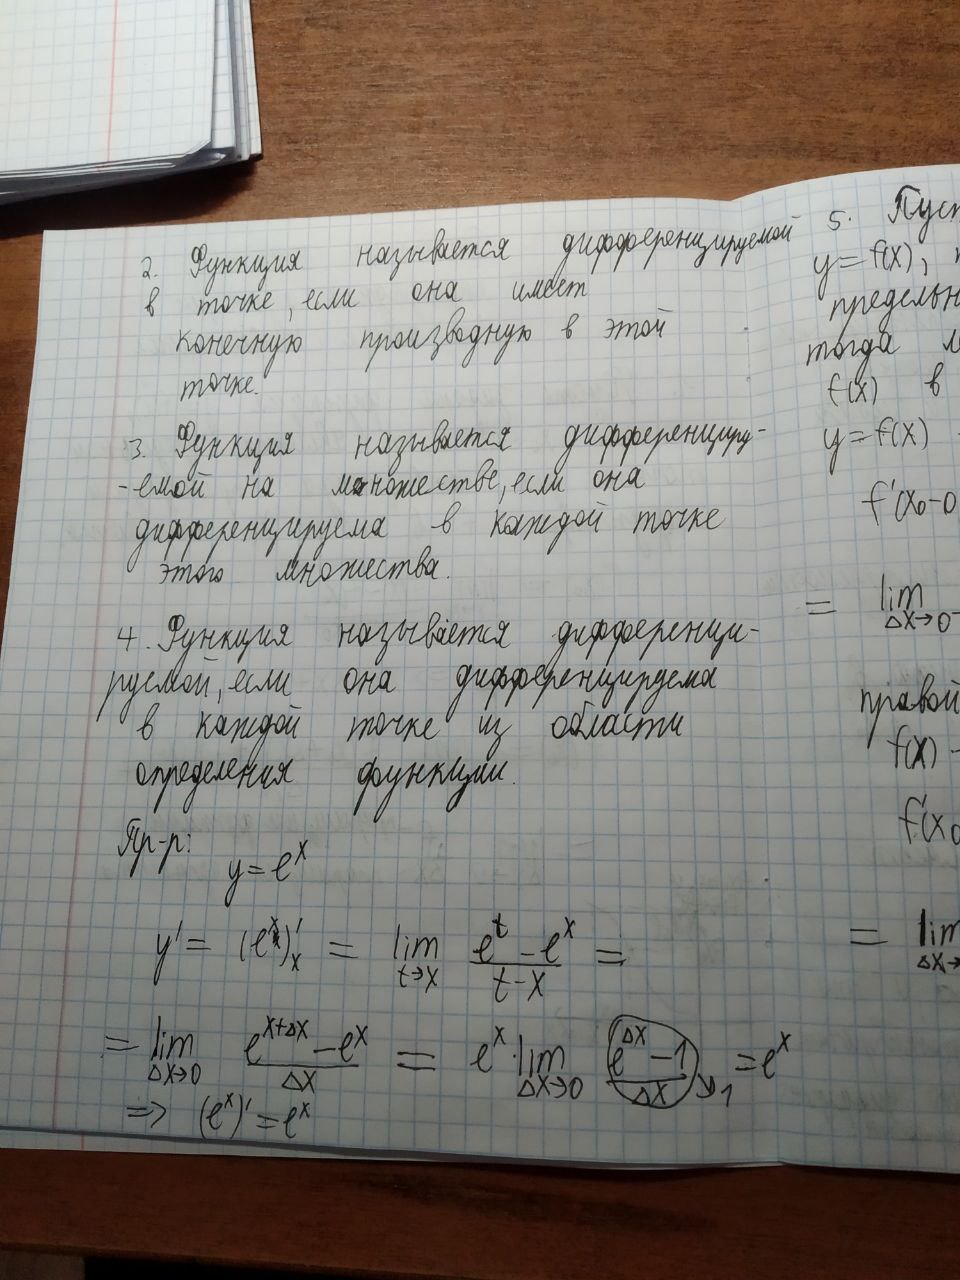 2. Функция называется дифференцируемой
в точке, если она имеет
конечную производную в этой
точке.
3. Функция называется дифференциру-
-емой на множестве, если она
дифференцируема в каждой точке
этого множества.
4. Функция называется дифференци-
руемой, если она дифференцируема
в каждой точке из области
определения функции.
Пр-р:
y = e^x
y' = (e^x)'_x = lim_{t→x} (e^t - e^x)/(t - x) =
= lim_{Δx→0} (e^{x+Δx} - e^x)/Δx = e^x · lim_{Δx→0} (e^{Δx} - 1)/Δx ↘1 = e^x
=> (e^x)' = e^x
5. Пуст
y = f(x),
предельн
тогда
f(x) в
y = f(x) -
f'(x₀-0
= lim_{Δx→0-}
правой
f(x) -
f'(x₀
= lim_{Δx→